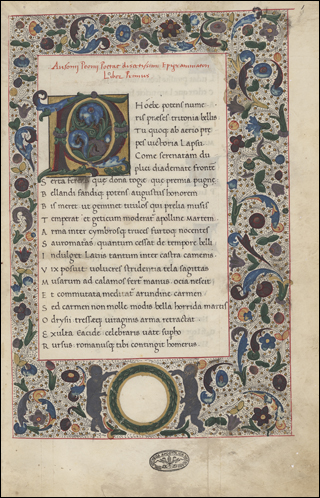 Ausonii Peonii Poetae disertissimi Epigrammaton
Liber Primus
PHoebe potens nume
ris preses tritonia bellis
Tu quoq; ab aerio prę
pes victoria Lapsu
Come serenatam du
plici diademate frontē
Serta ferens que dona togę que premia pugne
Bellandi fandiq; potens augustus honorem
Bis meret ut geminet titulos qui prelia musis
Temperat et geticum moderat apolline Martem
Arma inter cymbrosq; truces furtoq; nocentes
Sauromatas quantum cessat de tempore belli
Indulget Lariis tantum inter castra camenis
Vix posuit volucres stridentia tela sagittas
Musarum ad calamos fert manus ocia nescit
Et commutata meditat arundine carmen
Sed carmen non molle modis bella horrida martis
Odrysii tresseq; viraginis arma retractat
Exulta Eacide celebraris vate supbo
Rursus romanusq; tibi contingit homerus